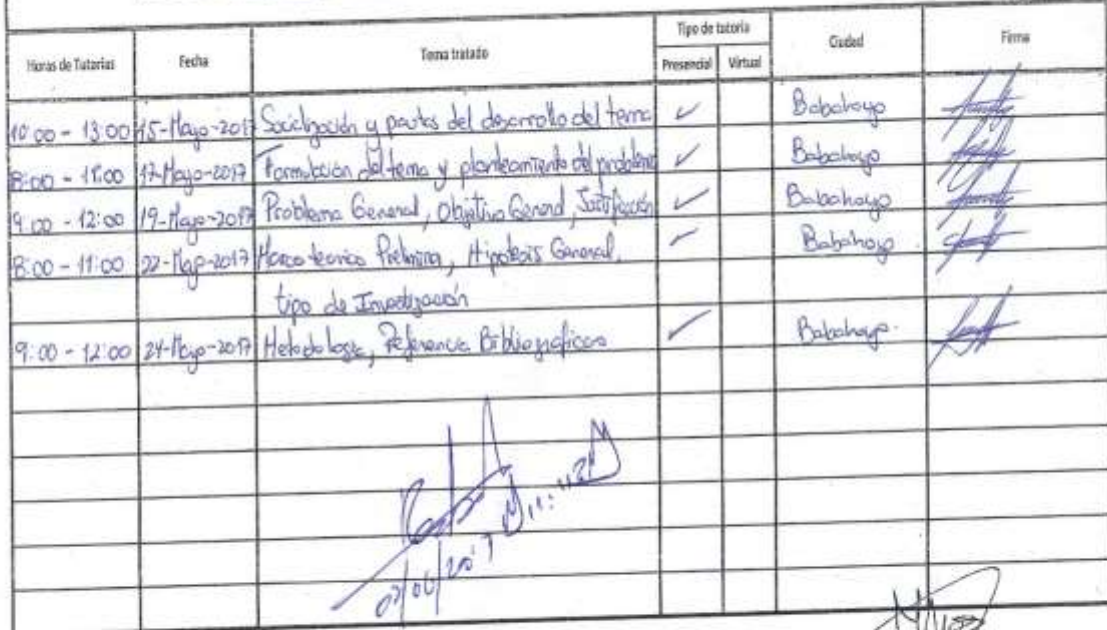 Tipo de tutoría
Horas de Tutorías Fecha Tema tratado Presencial Virtual Ciudad Firma
10:00 - 13:00 15-Mayo-2017 Socialización y pautas del desarrollo del tema ✓ Babahoyo
8:00 - 11:00 17-Mayo-2017 Formulación del tema y planteamiento del problema ✓ Babahoyo
9:00 - 12:00 19-Mayo-2017 Problema General, Objetivo General, Justificación ✓ Babahoyo
8:00 - 11:00 22-Mayo-2017 Marco teorico Preliminar, Hipotesis General, ✓ Babahoyo.
tipo de Investigación
9:00 - 12:00 24-Mayo-2017 Metodologia, Referencia Bibliograficas ✓ Babahoyo.